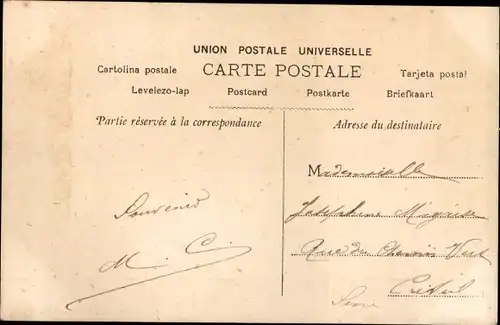 UNION POSTALE UNIVERSELLE
CARTE POSTALE
Cartolina postale
Tarjeta postal
Levelezo-lap
Postcard
Postkarte
Briefkaart
Partie réservée à la correspondance
Souvenir
M. C.
Adresse du destinataire
Mademoiselle
Joséphine
Rue du Chemin Vert
Créteil
Seine